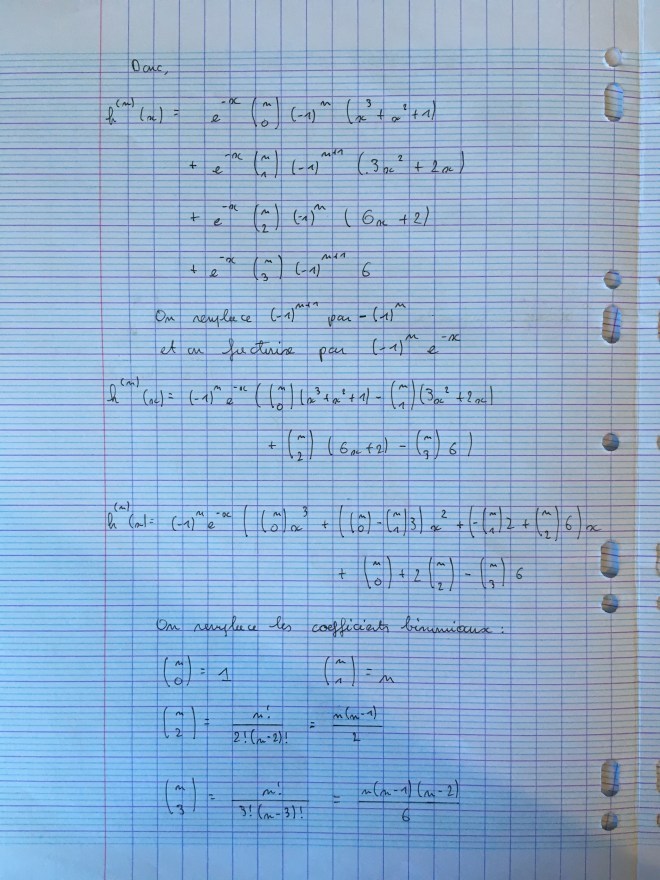 Donc,
h^(n)(x) = e^-x (n 0) (-1)^n (x^3 + x^2 + 1)
+ e^-x (n 1) (-1)^n+1 (3x^2 + 2x)
+ e^-x (n 2) (-1)^n (6x + 2)
+ e^-x (n 3) (-1)^n+1 6
On remplace (-1)^n+1 par -(-1)^n
et on factorise par (-1)^n e^-x
h^(n)(x) = (-1)^n e^-x ( (n 0) (x^3 + x^2 + 1) - (n 1) (3x^2 + 2x)
+ (n 2) (6x + 2) - (n 3) 6 )
h^(n)(x) = (-1)^n e^-x ( (n 0) x^3 + ( (n 0) - (n 1) 3 ) x^2 + ( - (n 1) 2 + (n 2) 6 ) x
+ (n 0) + 2 (n 2) - (n 3) 6
On remplace les coefficients binomiaux :
(n 0) = 1 (n 1) = n
(n 2) = n! / 2!(n-2)! = n(n-1) / 2
(n 3) = n! / 3!(n-3)! = n(n-1)(n-2) / 6